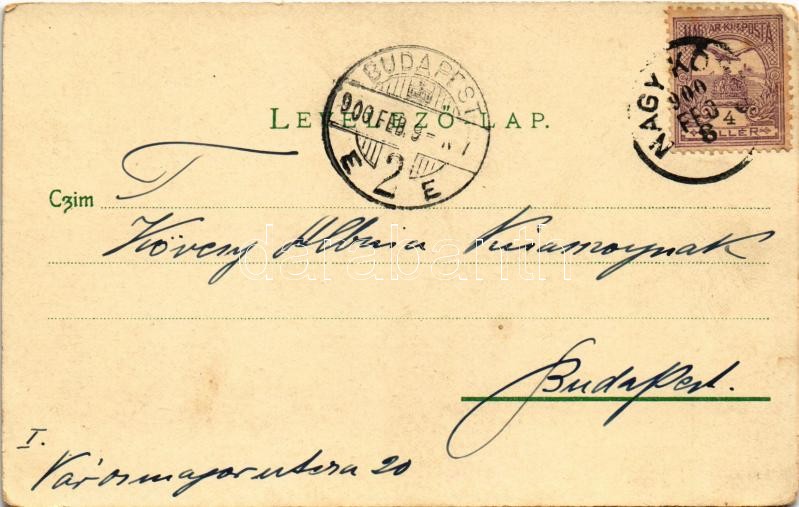 MAGYAR KIR. POSTA
4
FILLÉR
NAGY KŐ
900
FEB
8
BUDAPEST
900.FEB.9
2
E E
LEVELEZŐ-LAP.
Czim T
Kövesy Albina Kisasszonynak
darabanth
Budapest.
I.
Városmajor utcza 20